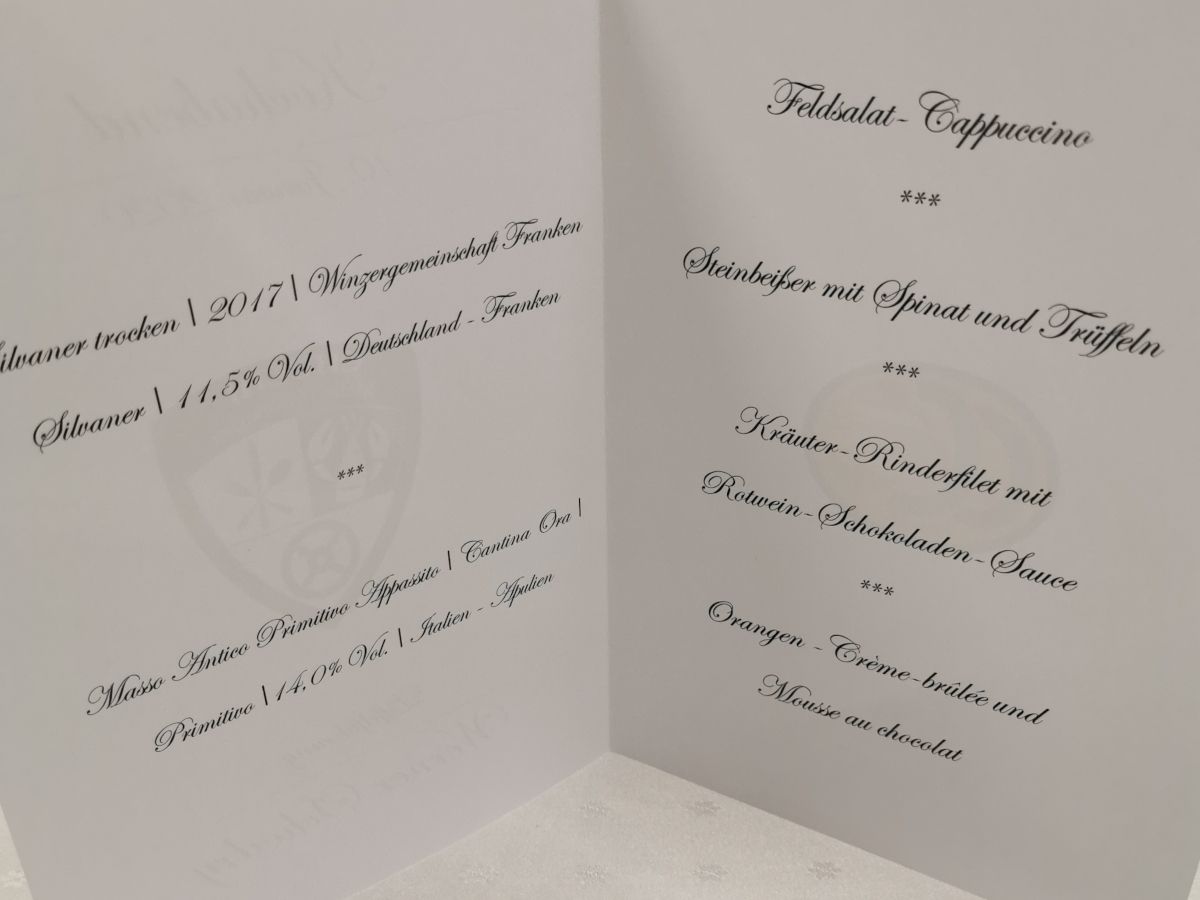 Silvaner trocken | 2017 | Winzergemeinschaft Franken
Silvaner | 11,5% Vol. | Deutschland - Franken
***
Masso Antico Primitivo Appassito | Cantina Ora |
Primitivo | 14,0% Vol. | Italien - Apulien
Feldsalat- Cappuccino
***
Steinbeißer mit Spinat und Trüffeln
***
Kräuter-Rinderfilet mit
Rotwein-Schokoladen-Sauce
***
Orangen - Crème-brûlée und
Mousse au chocolat